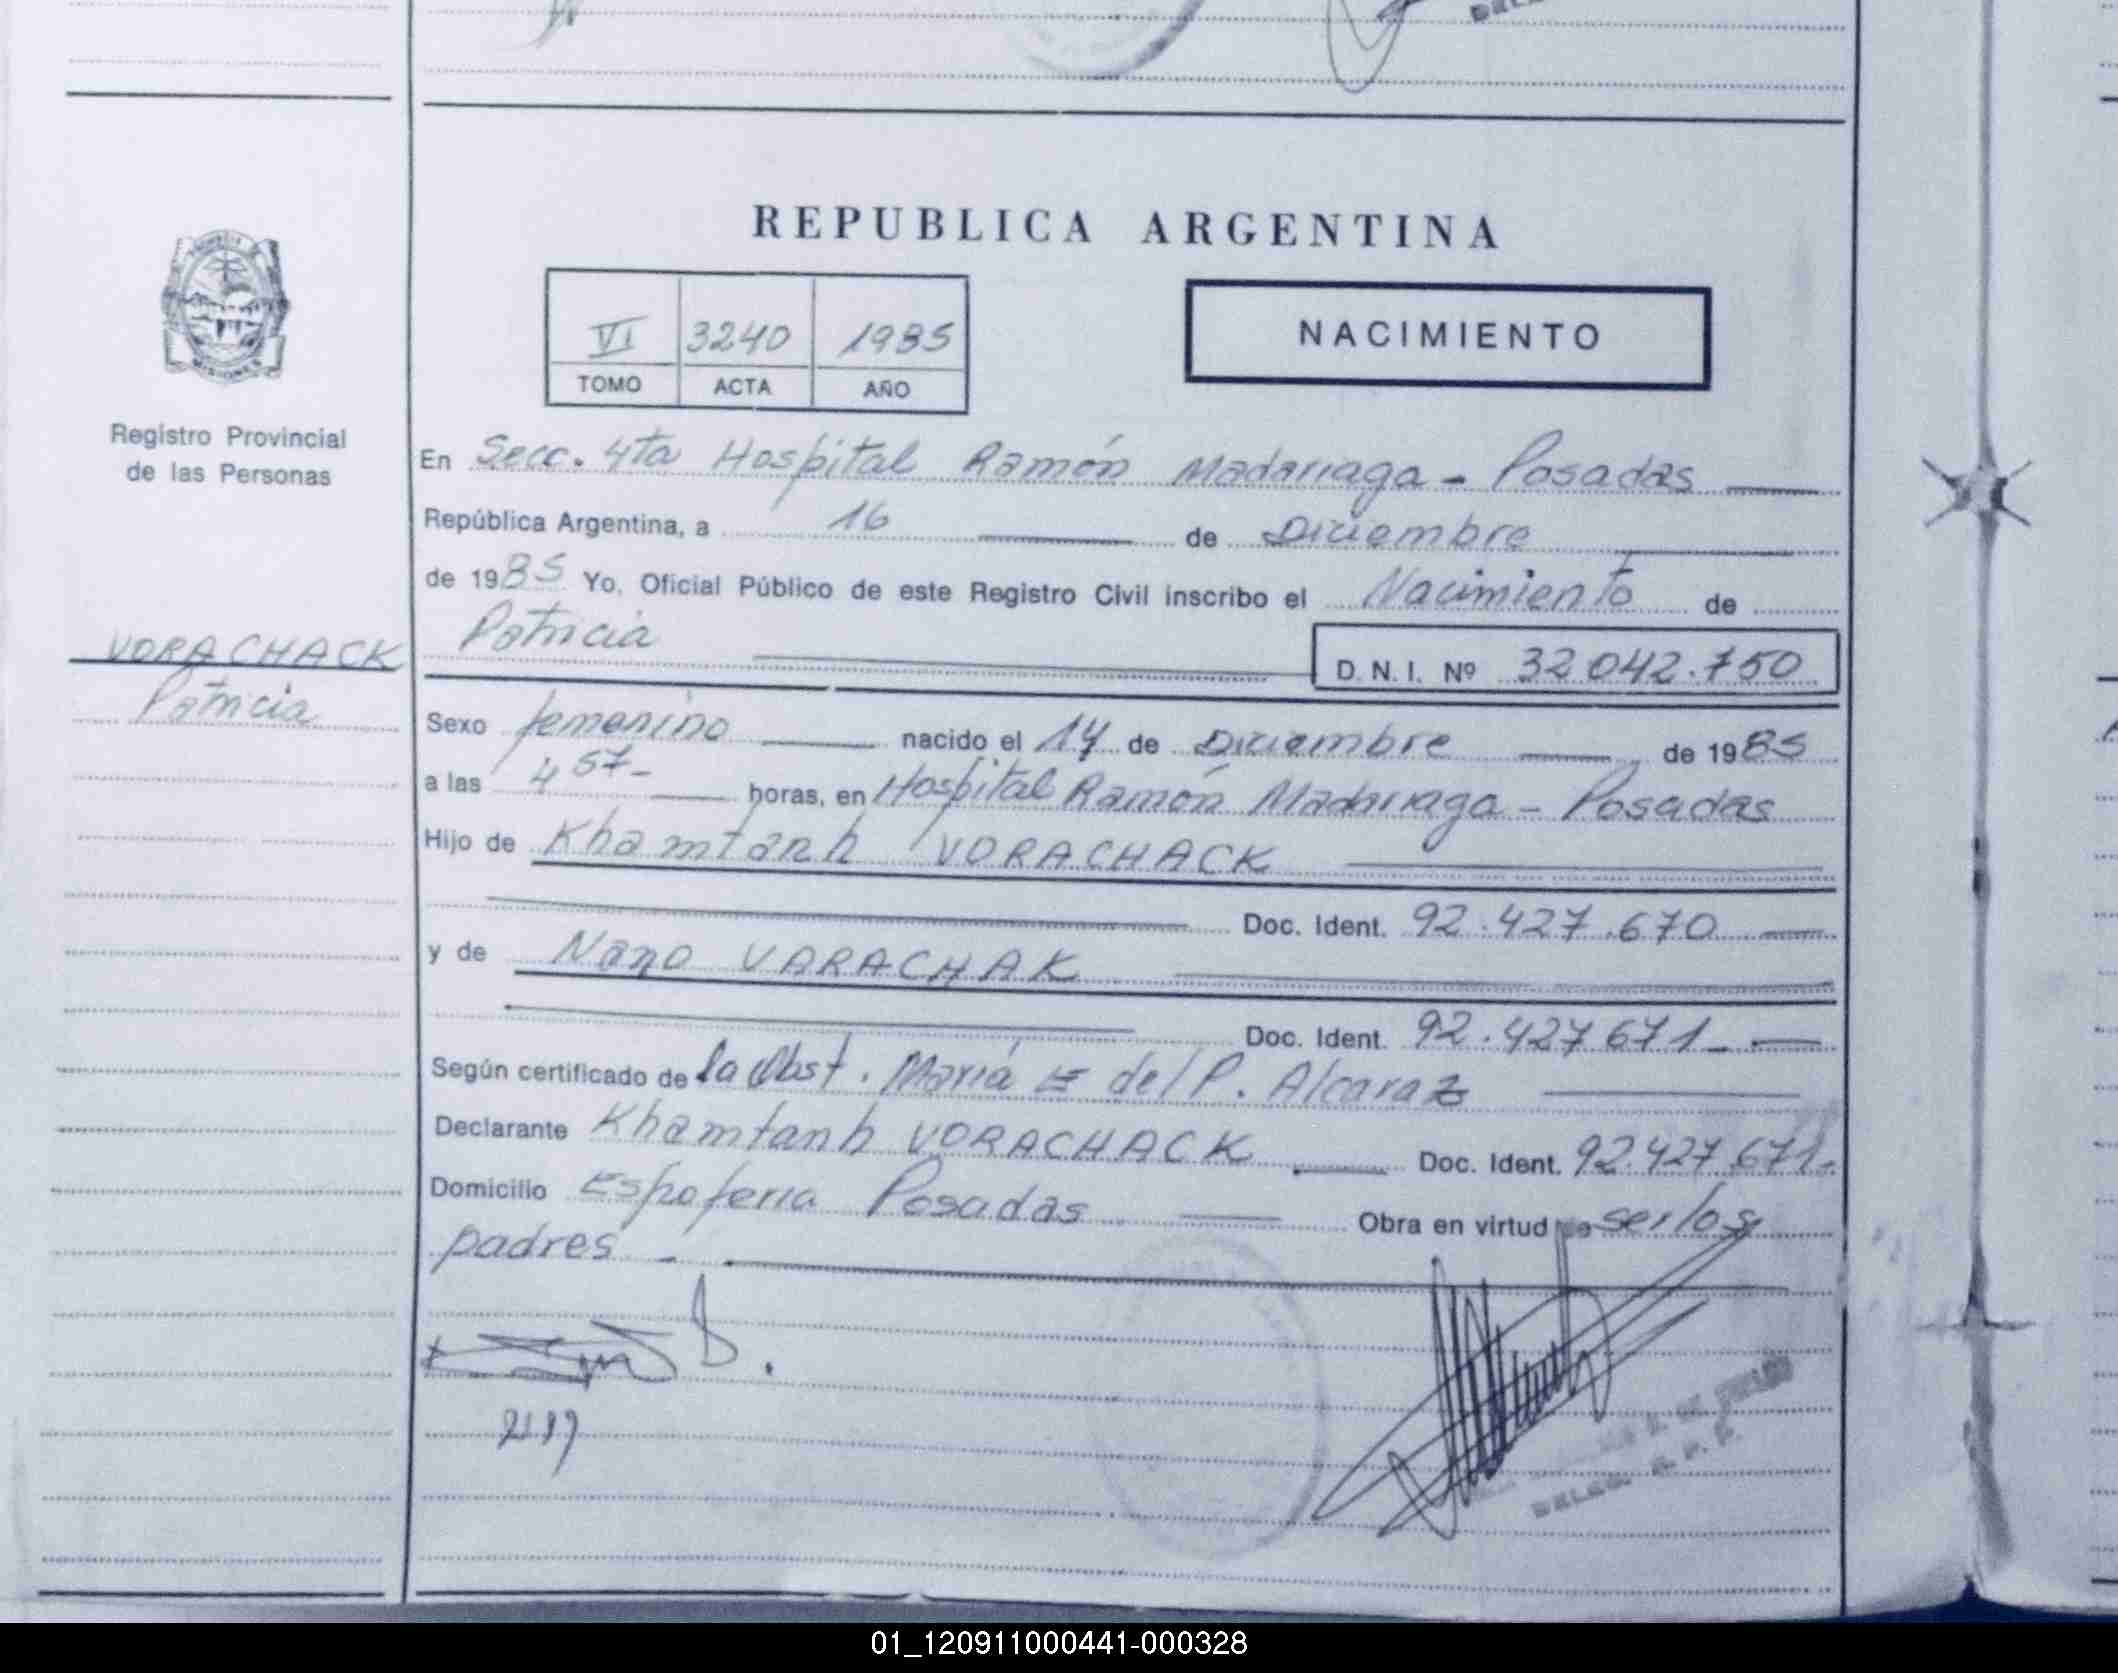 DELE
REPUBLICA ARGENTINA
VI 3240 1985
TOMO ACTA AÑO
NACIMIENTO
MISIONES
Registro Provincial
de las Personas
VORACHACK
Patricia
En Secc. 4ta Hospital Ramón Madariaga - Posadas
República Argentina, a 16 de Diciembre
de 1985 Yo, Oficial Público de este Registro Civil inscribo el Nacimiento de
Patricia
D. N. I. Nº 32042.750
Sexo femenino nacido el 14 de Diciembre de 1985
a las 4 57- horas, en Hospital Ramón Madariaga - Posadas
Hijo de Khamtanh VORACHACK
Doc. Ident. 92.427.670
y de Nang VARACHAK
Doc. Ident. 92.427671-
Según certificado de la Obst. María E del P. Alcaraz
Declarante Khamtanh VORACHACK Doc. Ident. 92.427.671.
Domicilio Espoferia Posadas Obra en virtud de ser los
padres -
DELEG. R. P. P.
01_120911000441-000328